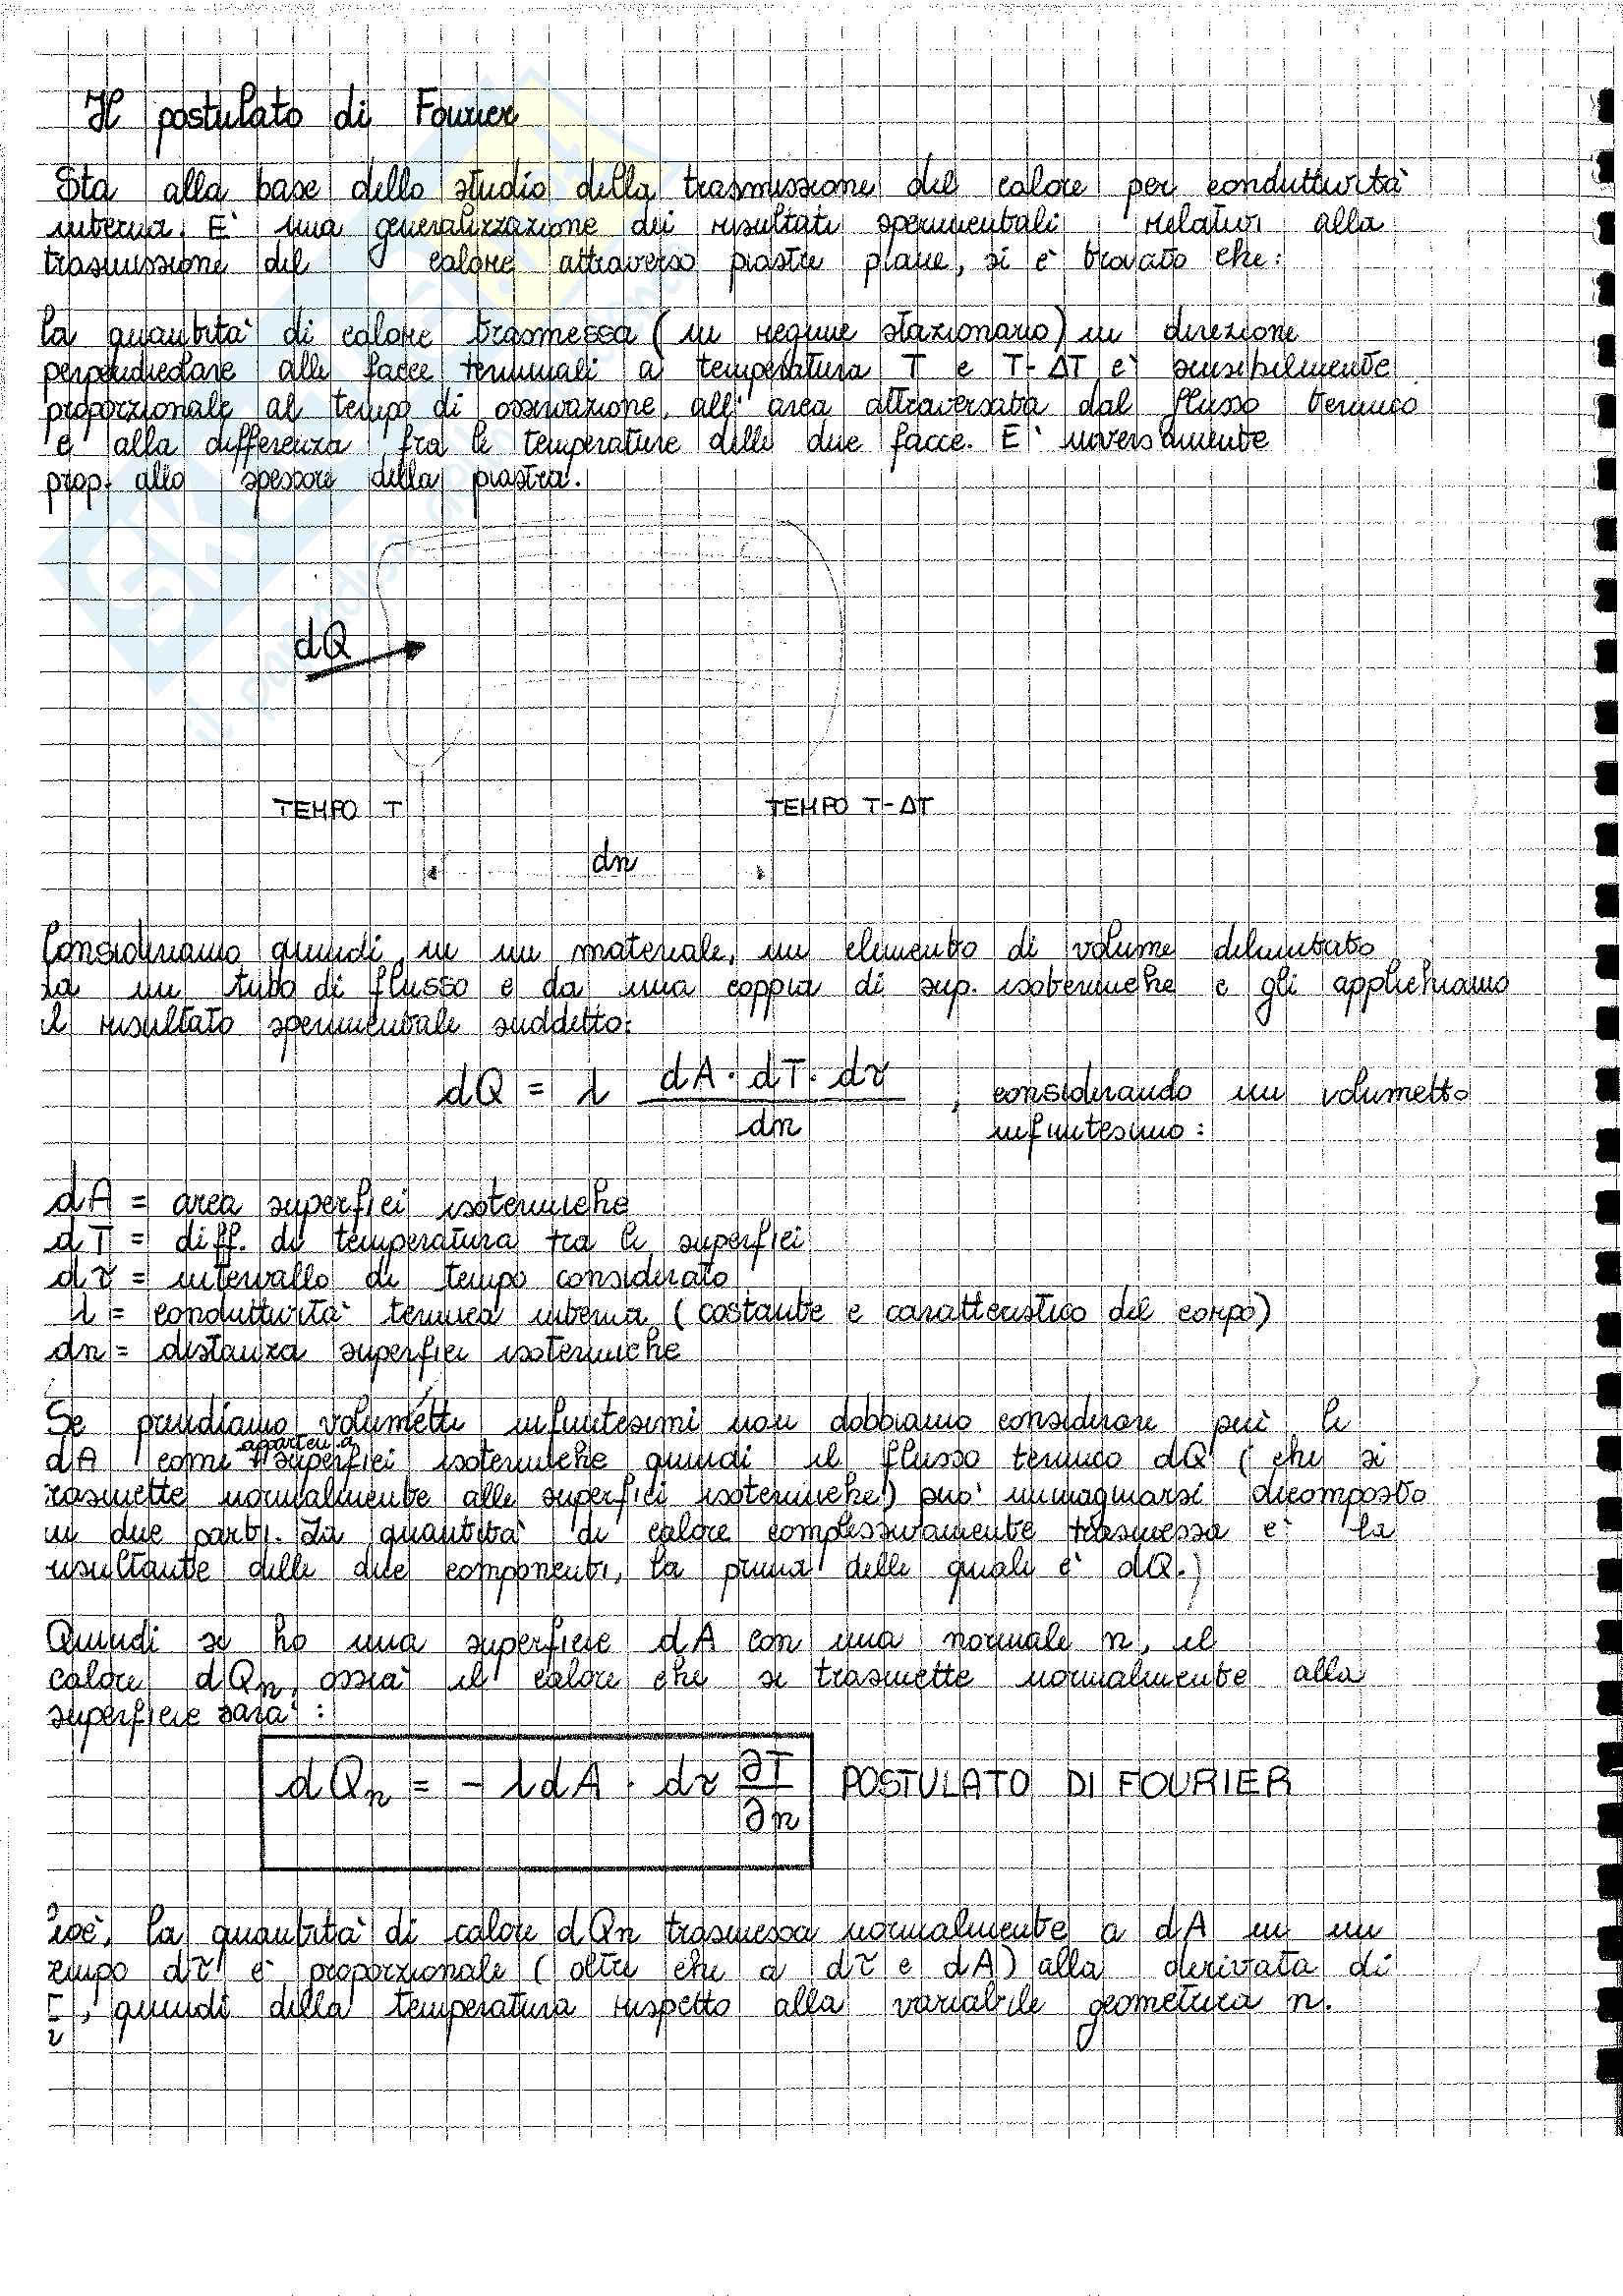 Il postulato di Fourier
Sta alla base dello studio della trasmissione del calore per conduttività
interna. E' una generalizzazione dei risultati sperimentali relativi alla
trasmissione del calore attraverso piastre piane, si è trovato che:
la quantità di calore trasmessa (in regime stazionario) in direzione
perpendicolare alle facce terminali a temperatura T e T-ΔT è sensibilmente
proporzionale al tempo di osservazione, all'area attraversata dal flusso termico
e alla differenza fra le temperature delle due facce. E' inversamente
prop. allo spessore della piastra.
dQ
TEMPO T TEMPO T-ΔT
dn
Consideriamo quindi, in un materiale, un elemento di volume delimitato
da un tubo di flusso e da una coppia di sup. isotermiche e gli applichiamo
il risultato sperimentale suddetto:
dQ = λ (dA · dT · dτ) / dn , considerando un volumetto
infinitesimo:
dA = area superfici isotermiche
dT = diff. di temperatura tra le superfici
dτ = intervallo di tempo considerato
λ = conduttività termica interna (costante e caratteristico del corpo)
dn = distanza superfici isotermiche
Se prendiamo volumetti infinitesimi non dobbiamo considerare più le
dA come apparten. a superfici isotermiche quindi il flusso termico dQ (che si
trasmette normalmente alle superfici isotermiche) può immaginarsi dicomposto
in due parti. La quantità di calore complessivamente trasmessa è la
risultante delle due componenti, la prima delle quali è dQ.)
Quindi se ho una superficie dA con una normale n, il
calore dQn, ossia il calore che si trasmette normalmente alla
superficie sarà:
dQn = - λ dA · dτ ∂T/∂n POSTULATO DI FOURIER
cioè, la quantità di calore dQn trasmessa normalmente a dA in un
tempo dτ è proporzionale (oltre che a dτ e dA) alla derivata di
T, quindi della temperatura rispetto alla variabile geometrica n.